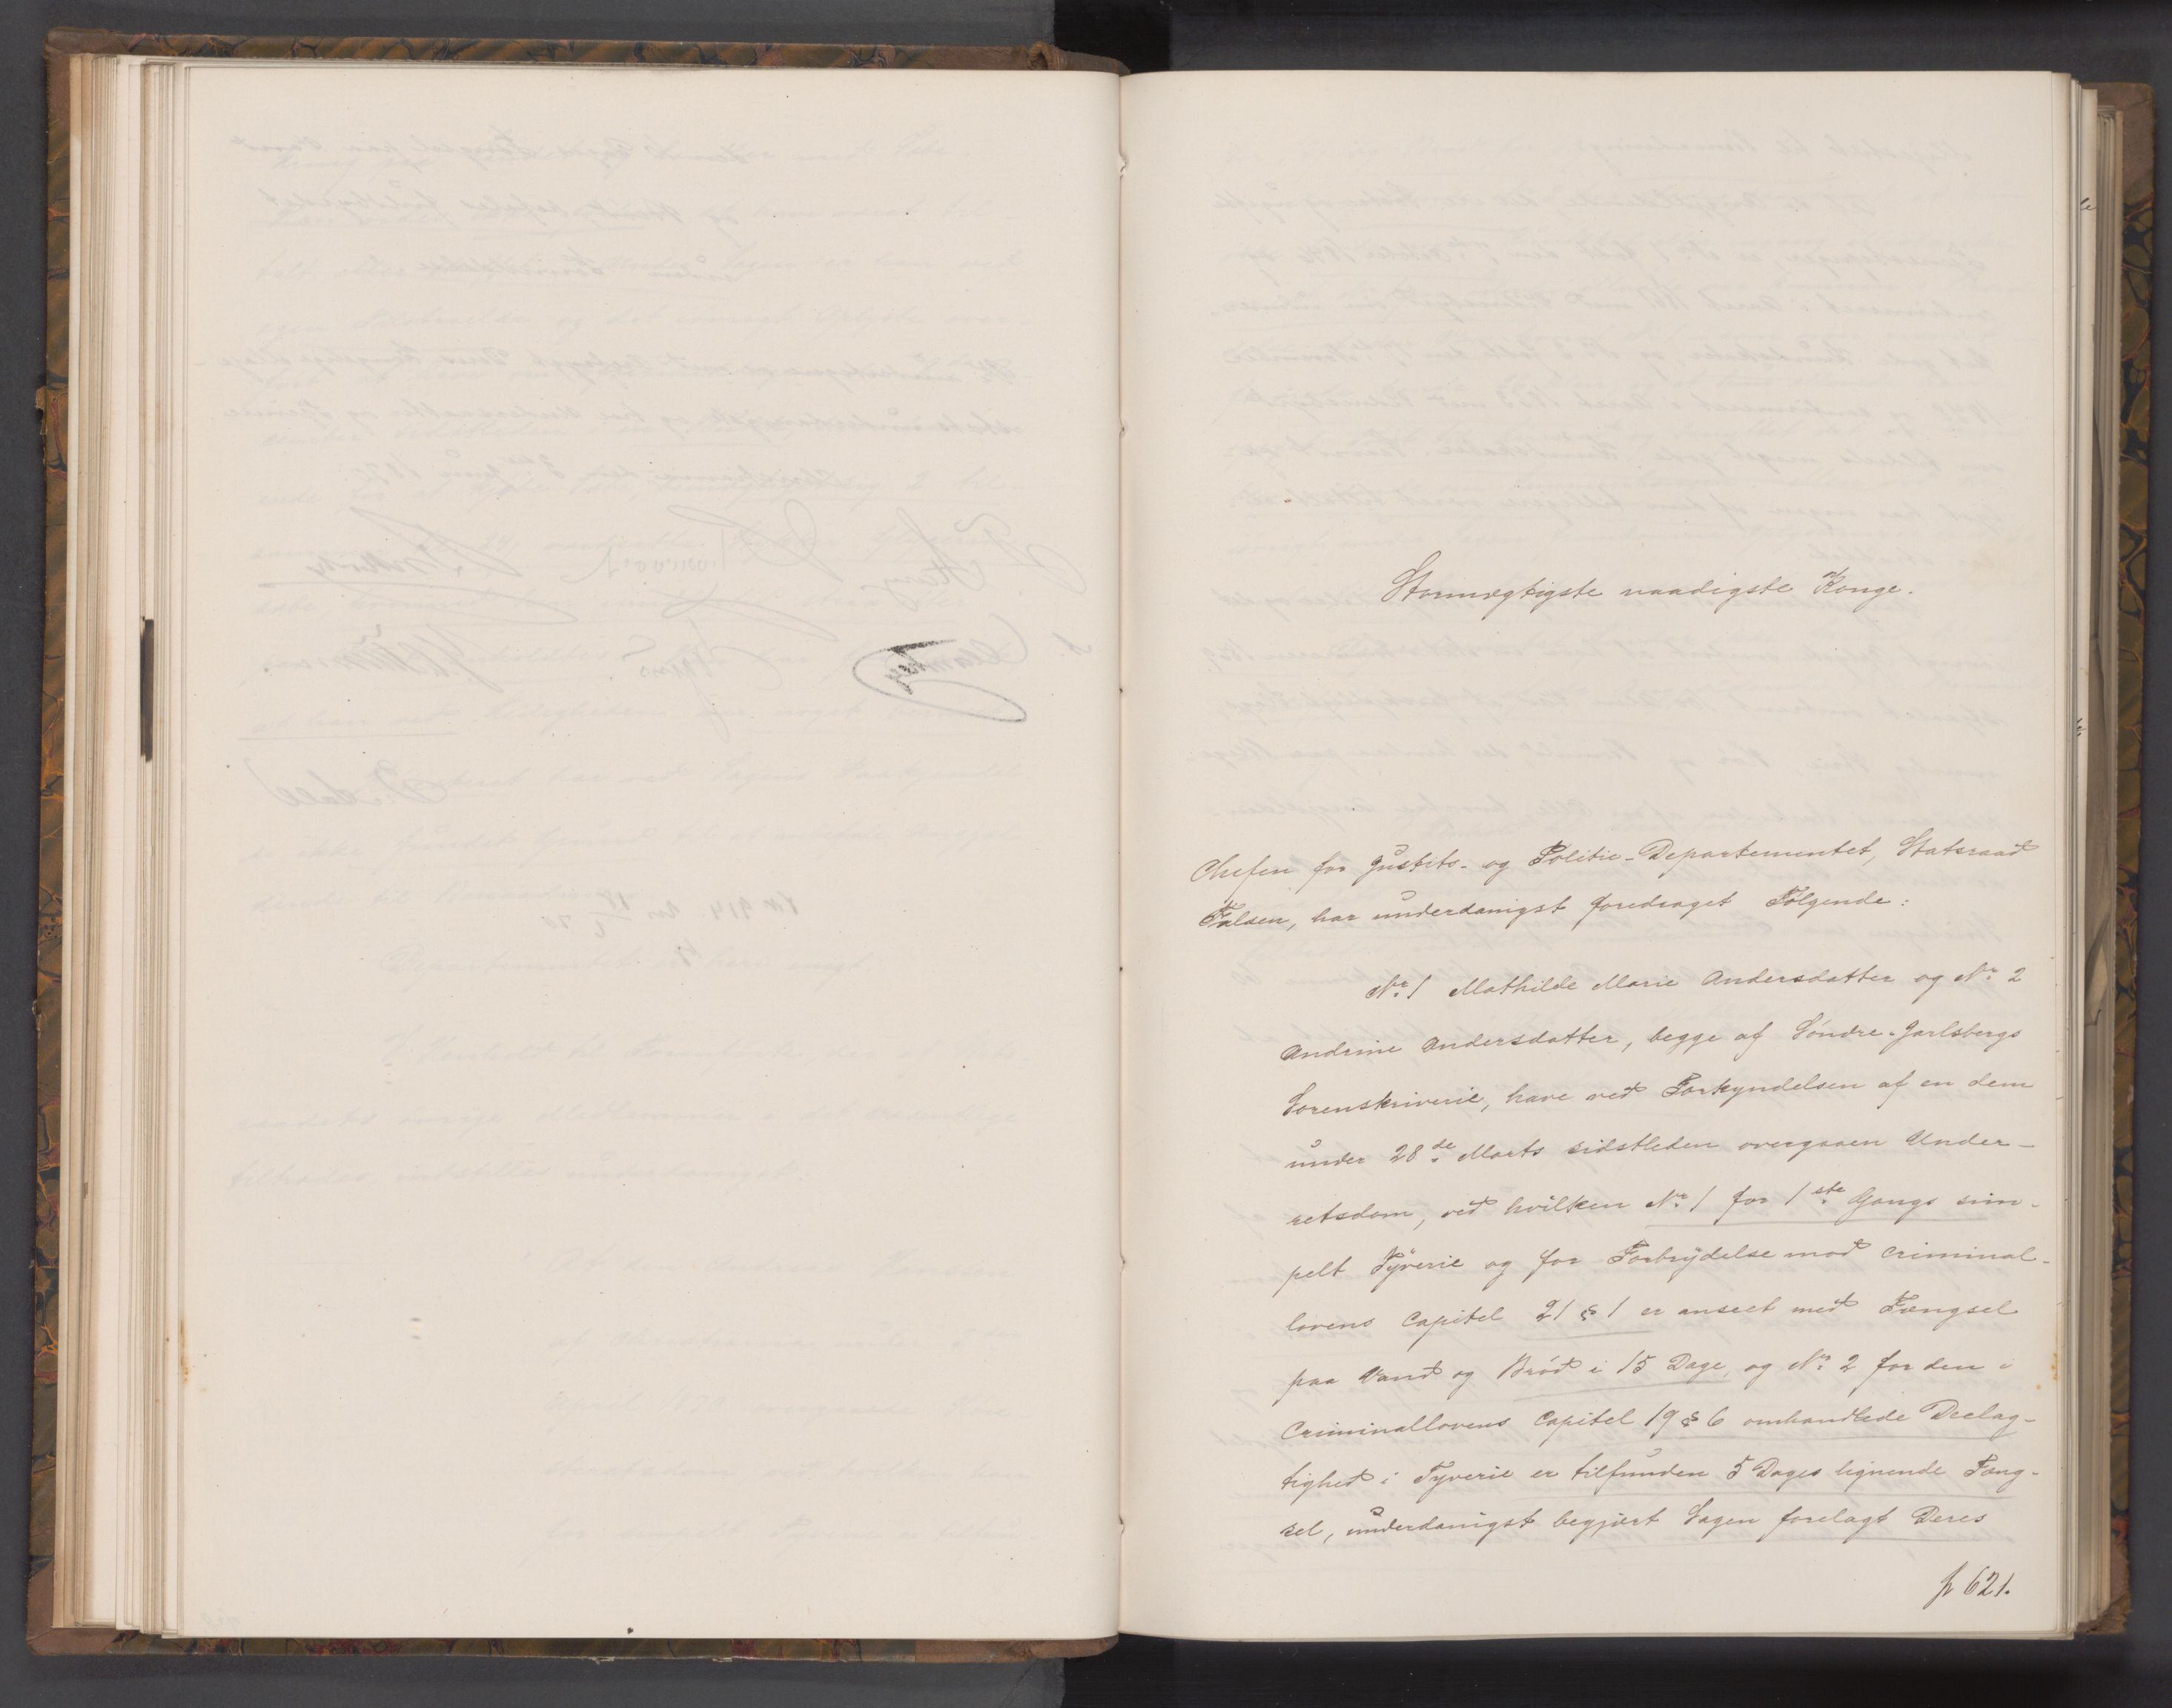 Stormægtigste naadigste Konge.
Chefen for Justits- og Politie-Departementet, Statsraad
Falsen, har underdanigst foredraget Følgende:
Nr. 1 Mathilde Marie Andersdatter og Nr. 2
Andrine Andersdatter, begge af Søndre-Jarlsbergs
Sorenskriverie, have ved Forkyndelsen af en dem
under 28de Marts sidstleden overgaaen Under-
retsdom, ved hvilken Nr. 1 for 1ste Gangs sim-
pelt Tyverie og for Forbrydelse mod Criminal-
lovens Capitel 21 § 1 er anseet med Fængsel
paa Vand og Brød i 15 Dage, og Nr. 2 for den i
Criminallovens Capitel 19 § 6 omhandlede Deelag-
tighed i Tyverie er tilfunden 5 Dages lignende Fæng-
sel, underdanigst begjært Sagen forelagt Deres
p 621.